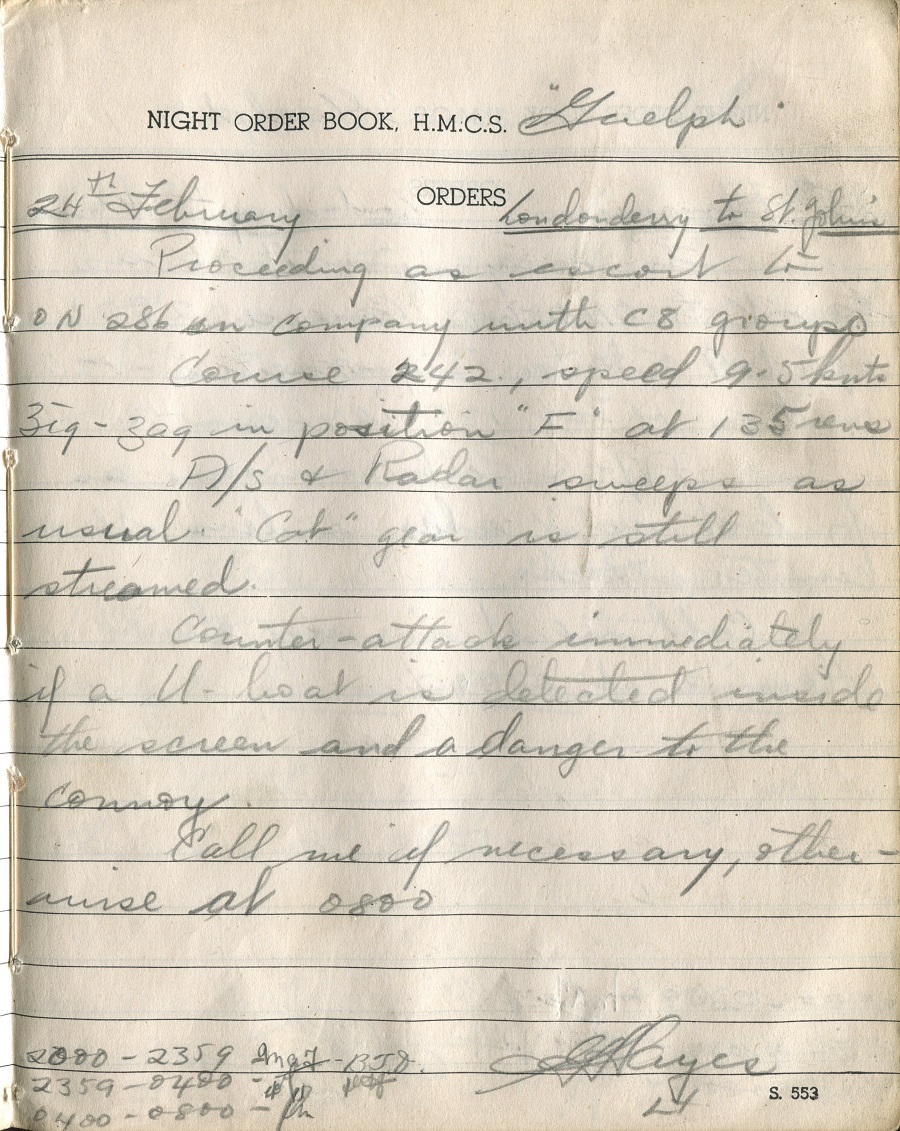 NIGHT ORDER BOOK, H.M.C.S. "Guelph"
ORDERS
24th February Londonderry to St. John's
Proceeding as escort to
ON 286 in company with C8 group.
Course 242., speed 9.5 knts
Zig-zag in position "F" at 135 revs
A/s & Radar sweeps as
usual. "Cat" gear is still
streamed.
Counter-attack immediately
if a U-boat is detected inside
the screen and a danger to the
convoy.
Call me if necessary, other-
wise at 0800
2000 - 2359
2359 - 0400 -
0400 - 0800 -
Hayes
Lt
S. 553